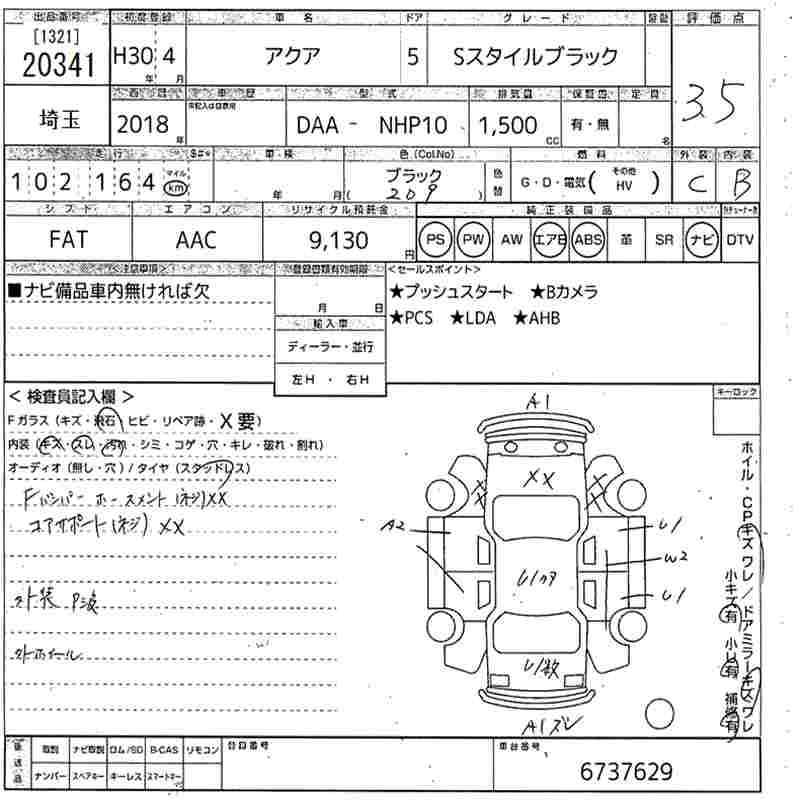 出品番号 初度登録 車名 ドア グレード 評価点
[1321]
20341 H30年 4月 アクア 5 Sスタイルブラック 3.5
西暦 車歴 型式 排気量 保証書 定員
未記入は自家用
埼玉 2018年 DAA - NHP10 1,500cc 有・無 名
走行 S#* 車検 色(Col.No) 燃料 外装 内装
102,164 マイル km 年 月 ブラック (209) 色替 G・D・電気( その他 HV ) C B
シフト エアコン リサイクル預託金 純正装備品
FAT AAC 9,130円 PS PW AW エアB ABS 革 SR ナビ DTV
<注意事項> 登録書類有効期限 <セールスポイント>
■ナビ備品車内無ければ欠 月 日 ★プッシュスタート ★Bカメラ
輸入車 ★PCS ★LDA ★AHB
ディーラー・並行
左H ・ 右H
<検査員記入欄> キーロック
Fガラス (キズ・飛石・ヒビ・リペア跡・X要)
内装 (キズ・スレ・汚れ・シミ・コゲ・穴・キレ・破れ・割れ)
オーディオ (無し・穴) / タイヤ (スタッドレス)
Fバンパーホースメント(ネジ)XX
コアサポート(ネジ) XX
外装 P波
外ホイール
A1
XX
A2
U1
W2
U1
U1数
A1ズレ
ホイル・CPキズワレ/ドアミラーキズワレ
小キズ有 小U有 補修有
後送品 取説 ナビ取説 ロム/SD B-CAS リモコン 登録番号 車台番号
ナンバー スペアキー キーレス スマートキー 6737629